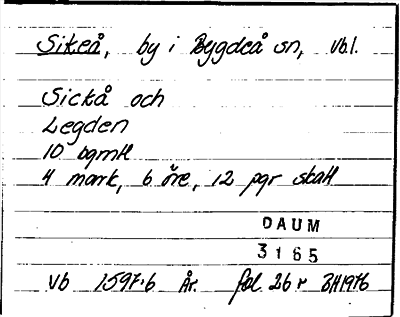 Sikeå, by i Bygdeå sn, Vbl.
Sickå och
Legden
10 bqmtl
4 mark, 6 öre, 12 pgr skatt
DAUM
3165
Vb 1597:6 År fol. 26 r